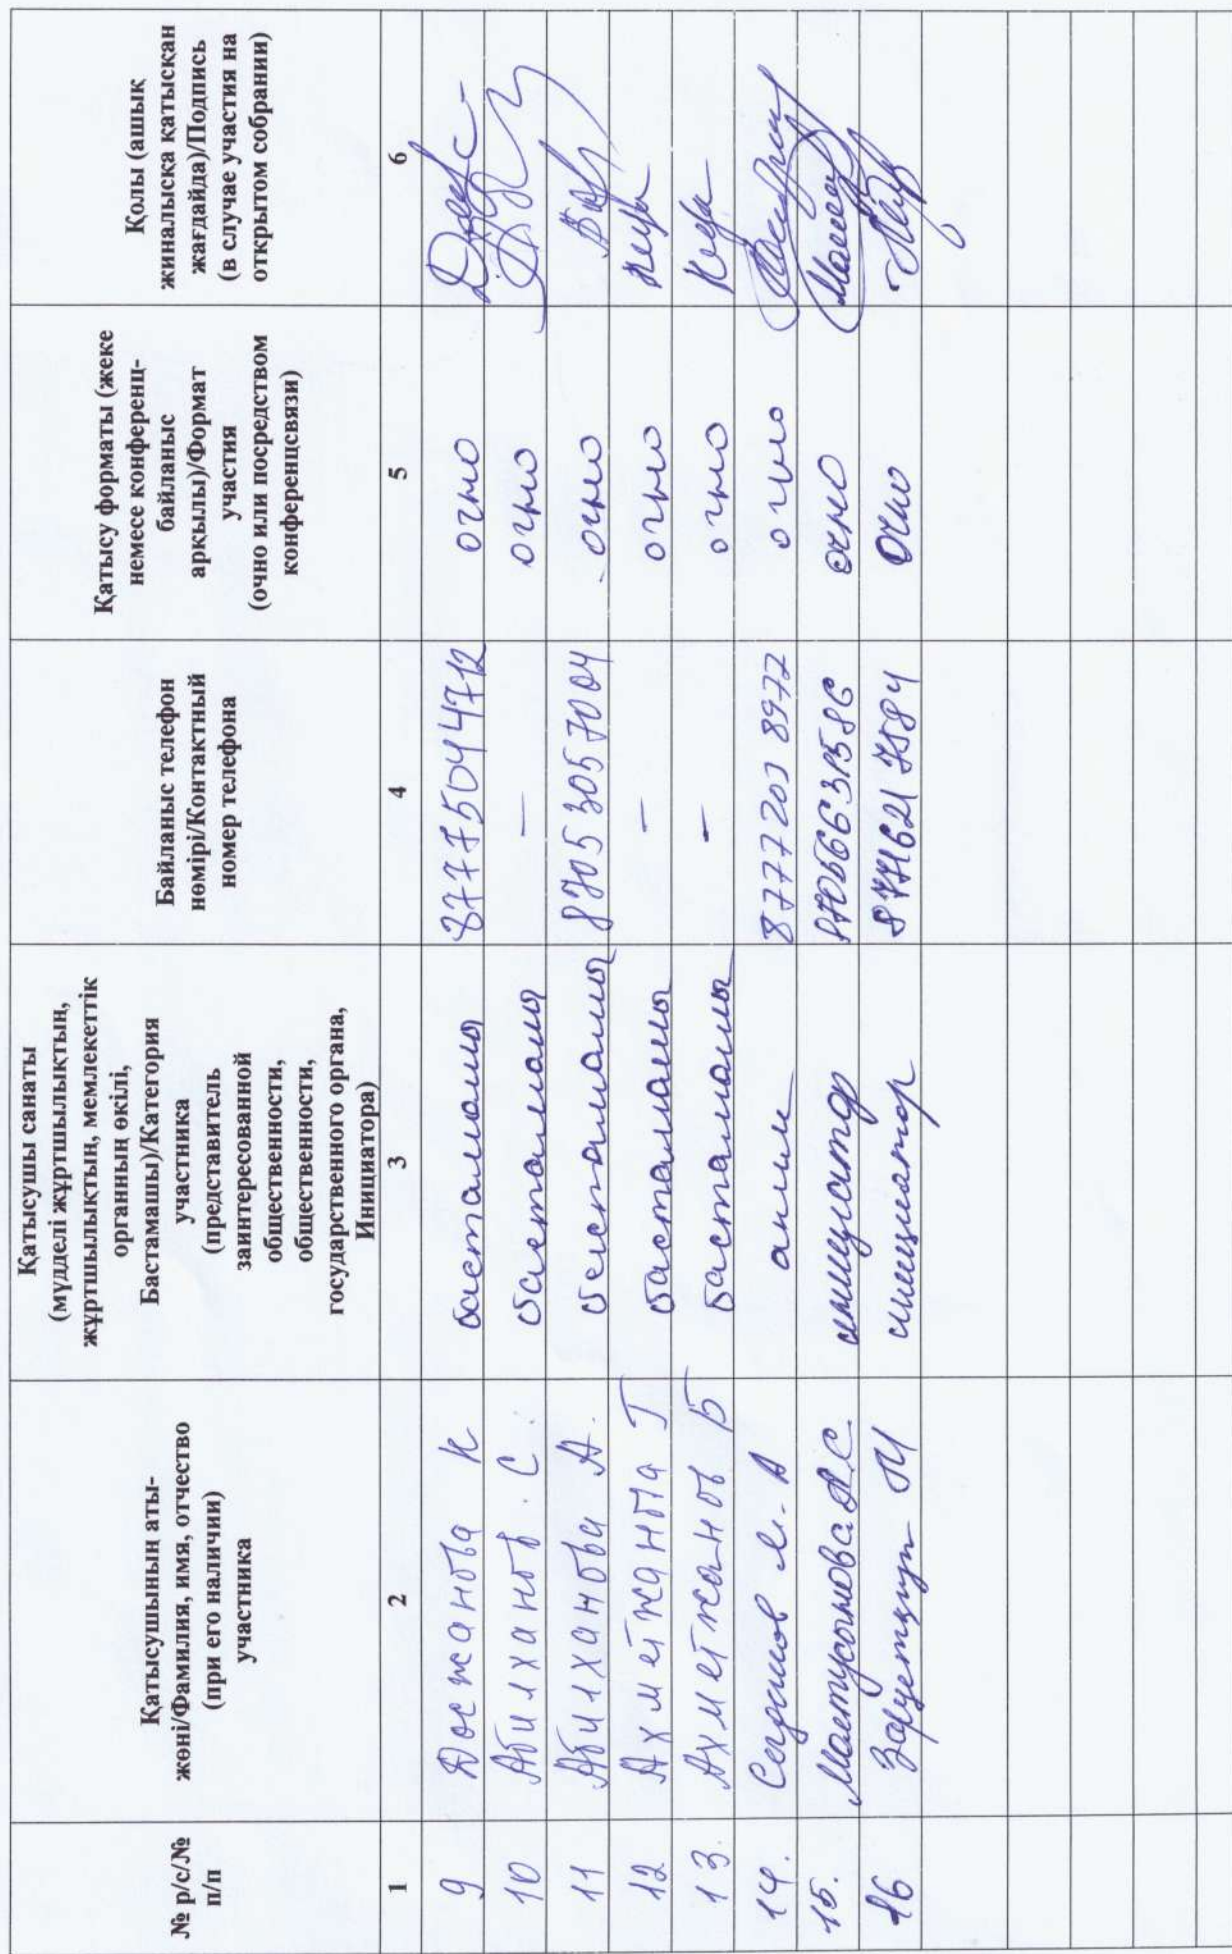 № р/с/№
п/п
Қатысушының аты-
жөні/Фамилия, имя, отчество
(при его наличии)
участника
Қатысушы санаты
(мүдделі жұртшылықтың,
жұртшылықтың, мемлекеттік
органның өкілі,
Бастамашы)/Категория
участника
(представитель
заинтересованной
общественности,
общественности,
государственного органа,
Инициатора)
Байланыс телефон
нөмірі/Контактный
номер телефона
Қатысу форматы (жеке
немесе конференц-
байланыс
арқылы)/Формат
участия
(очно или посредством
конференцсвязи)
Қолы (ашық
жиналысқа қатысқан
жағдайда)/Подпись
(в случае участия на
открытом собрании)
1 2 3 4 5 6
9 Досжанова К бастамашы 87775044712 очно
10 Абилханов С. бастамашы – очно
11 Абилханова А. бастамашы 87053057004 очно
12 Ахметжанова Г бастамашы – очно
13. Ахметжанов Б бастамашы – очно
14. М. А аким 8777203 8972 очно
15. С. инициатор очно
16 М инициатор очно